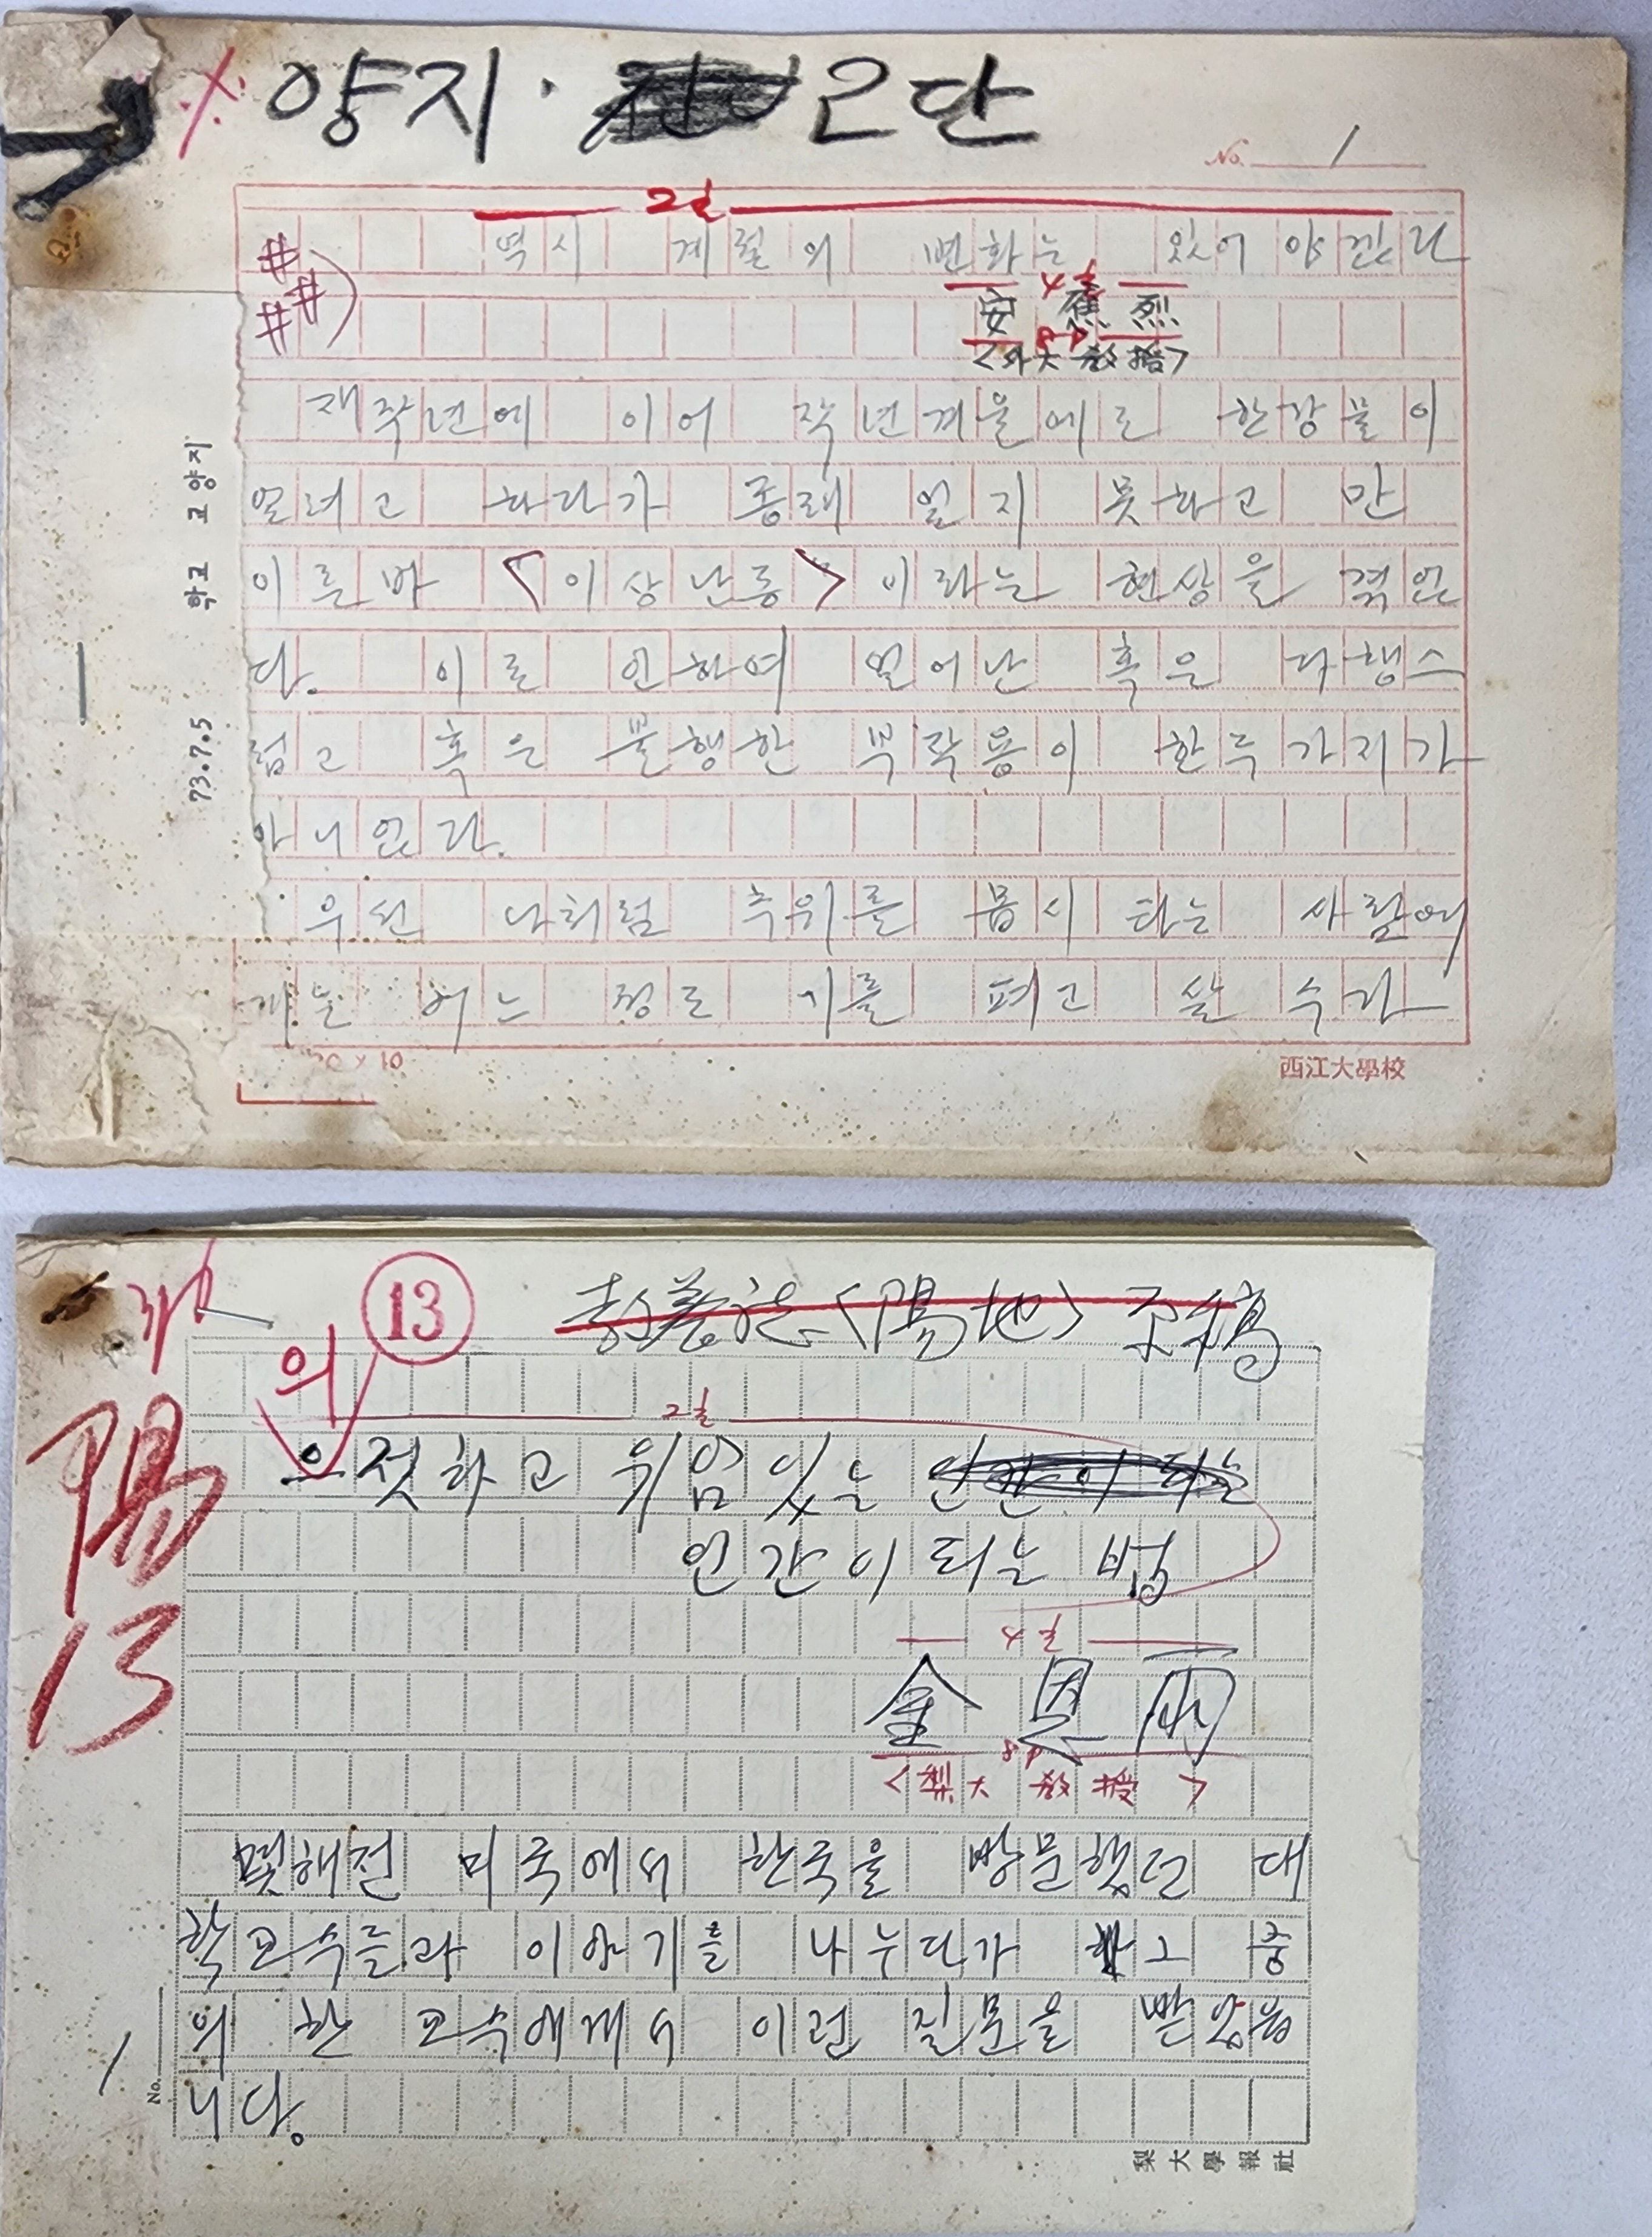 양지 · 2단
No. 1
2호
역시 계절의 변화는 있어야겠다
4호
安 烈
8P
<外大 敎授>
재작년에 이어 작년겨울에도 한강물이
얼려고 하다가 종래 얼지 못하고 만
이른바 <이상난동> 이라는 현상을 겪었
다. 이로 인하여 일어난 혹은 다행스
럽고 혹은 불행한 부작용이 한두가지가
아니었다.
우선 나처럼 추위를 몹시 타는 사람에
게는 어느 정도 기를 펴고 살 수가
20 x 10
西江大學校
학교 교양지
73.7.5
13
敎養誌 <陽地> 原稿
의
2호
으젓하고 위엄있는 인간이 되는
인간이 되는 법
陽
13
4호
金恩雨
8P
<梨大 敎授>
몇해전 미국에서 한국을 방문했던 대
학교수들과 이야기를 나누다가 그 중
의 한 교수에게서 이런 질문을 받았읍
니다.
No. 1
梨大學報社